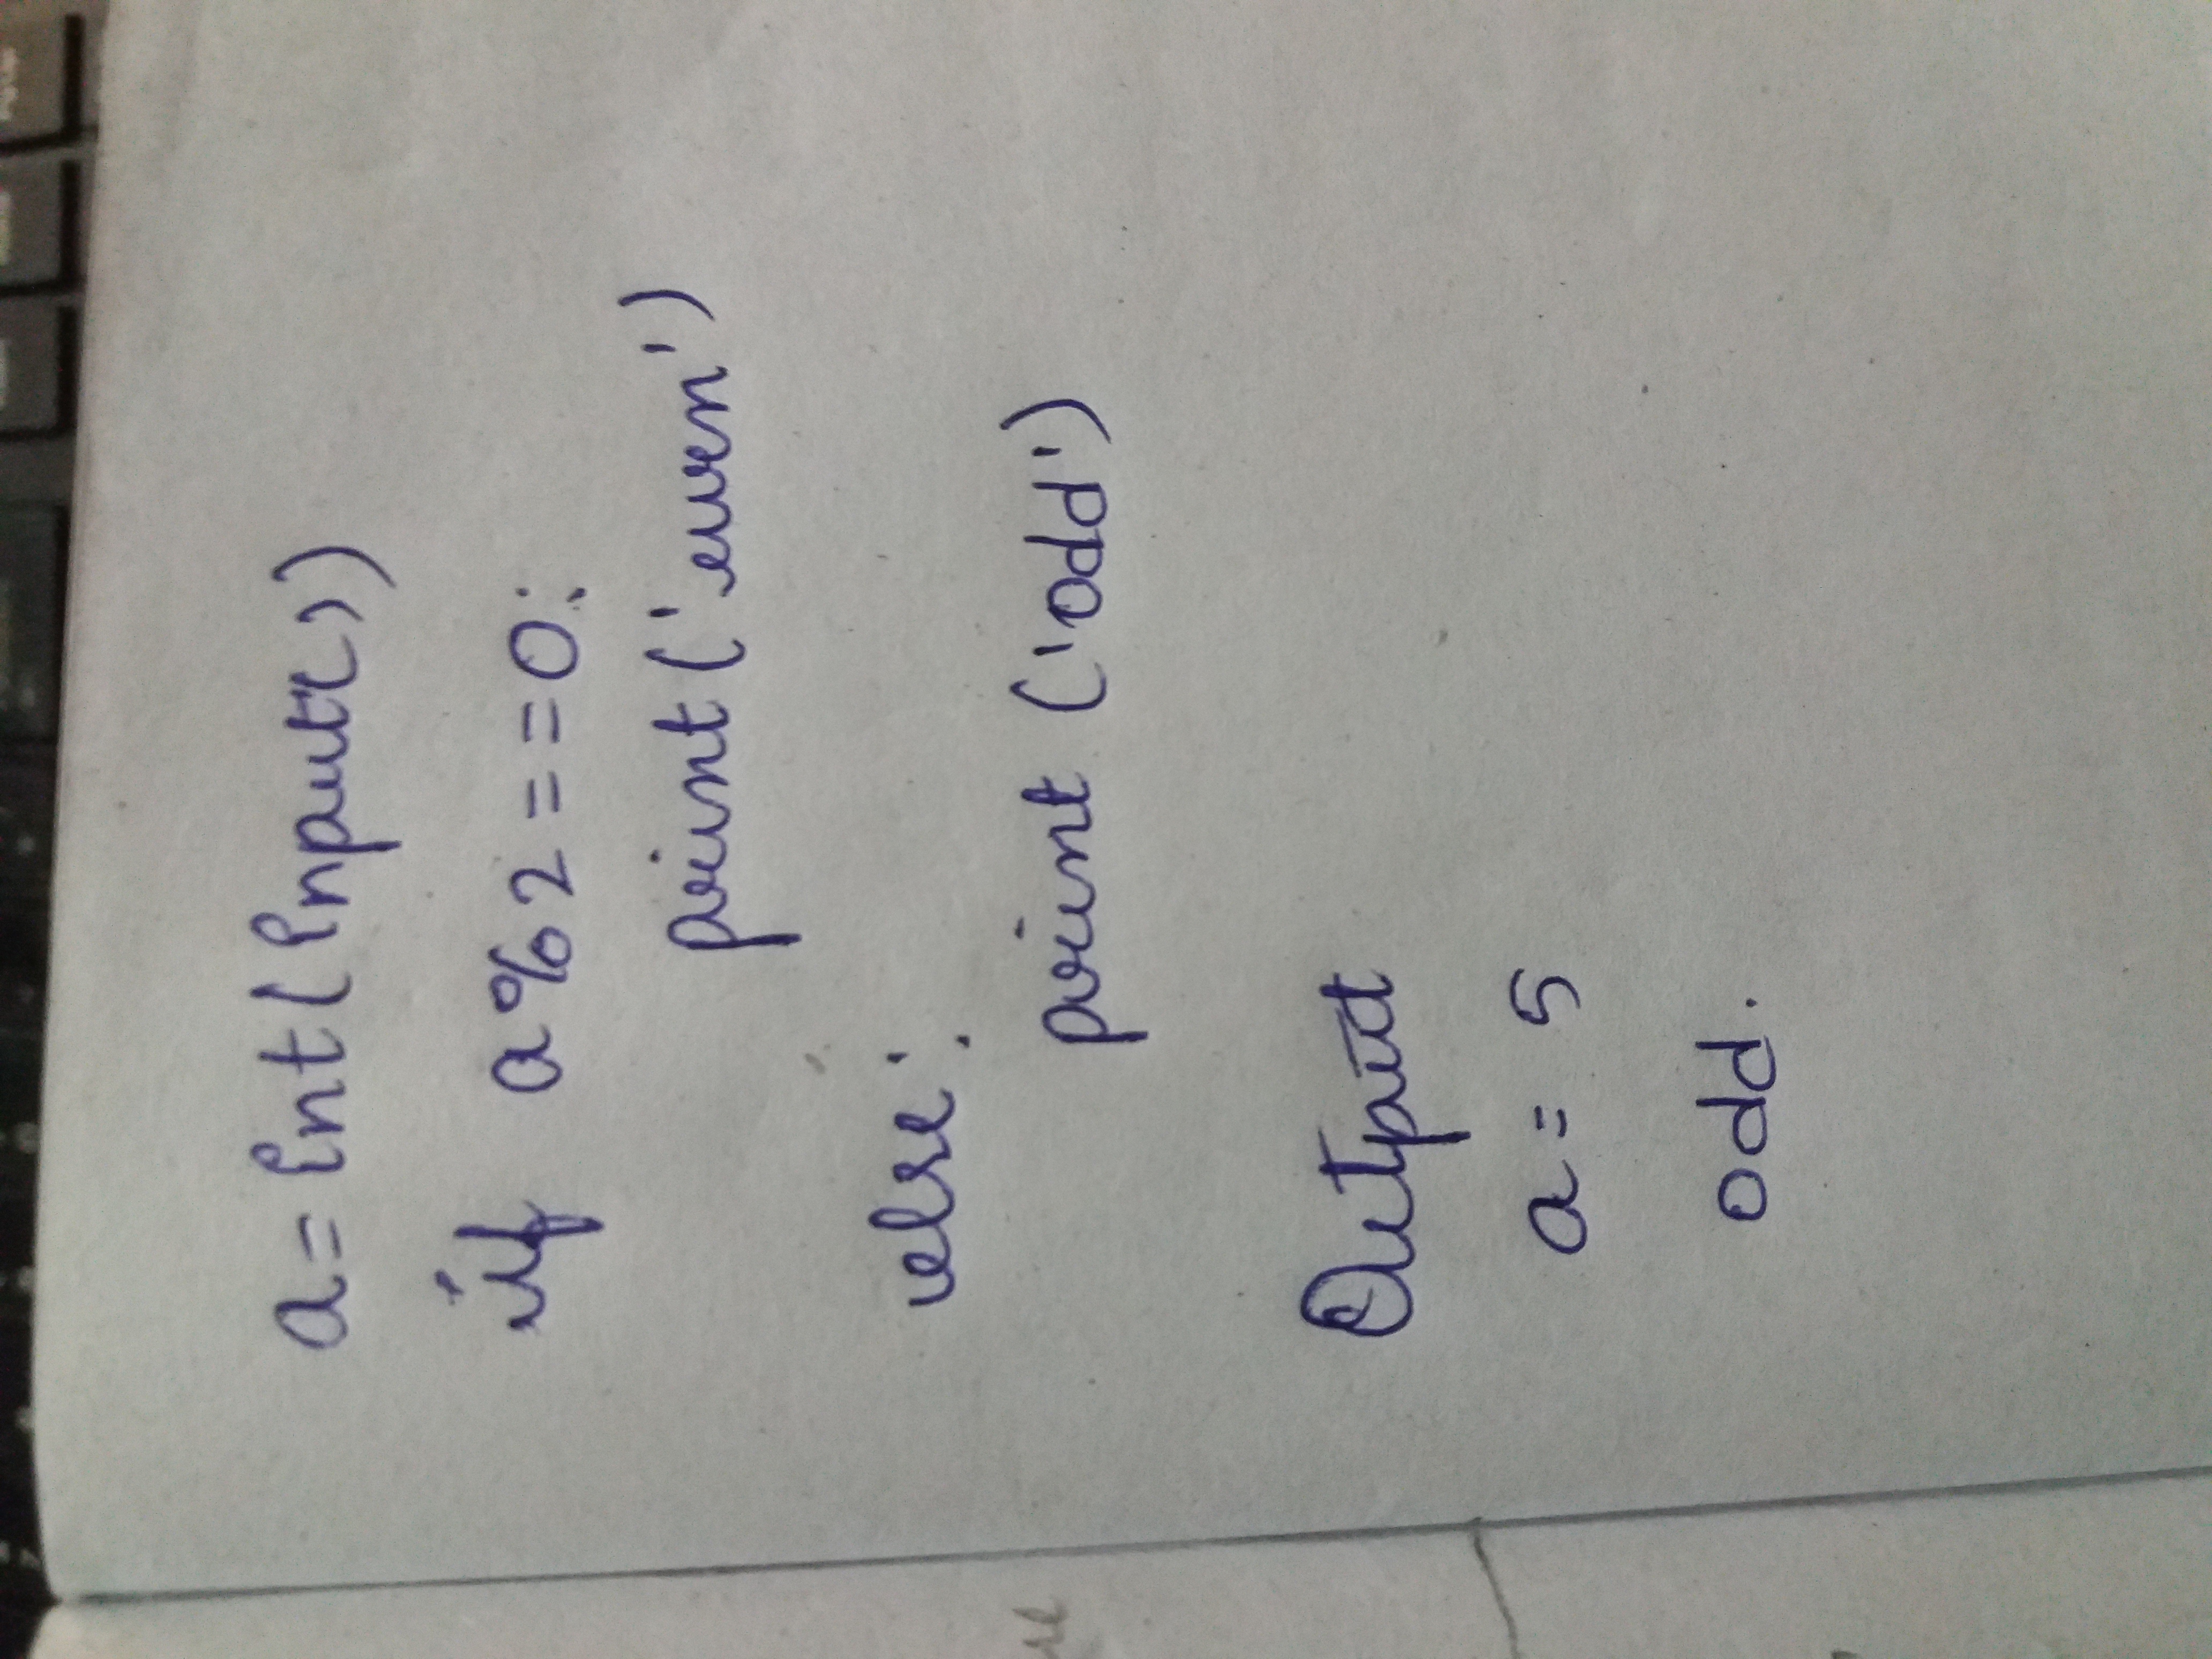 a = int(input())
if a%2 = = 0:
print('even')
else:
print ('odd')
Output
a = 5
odd.